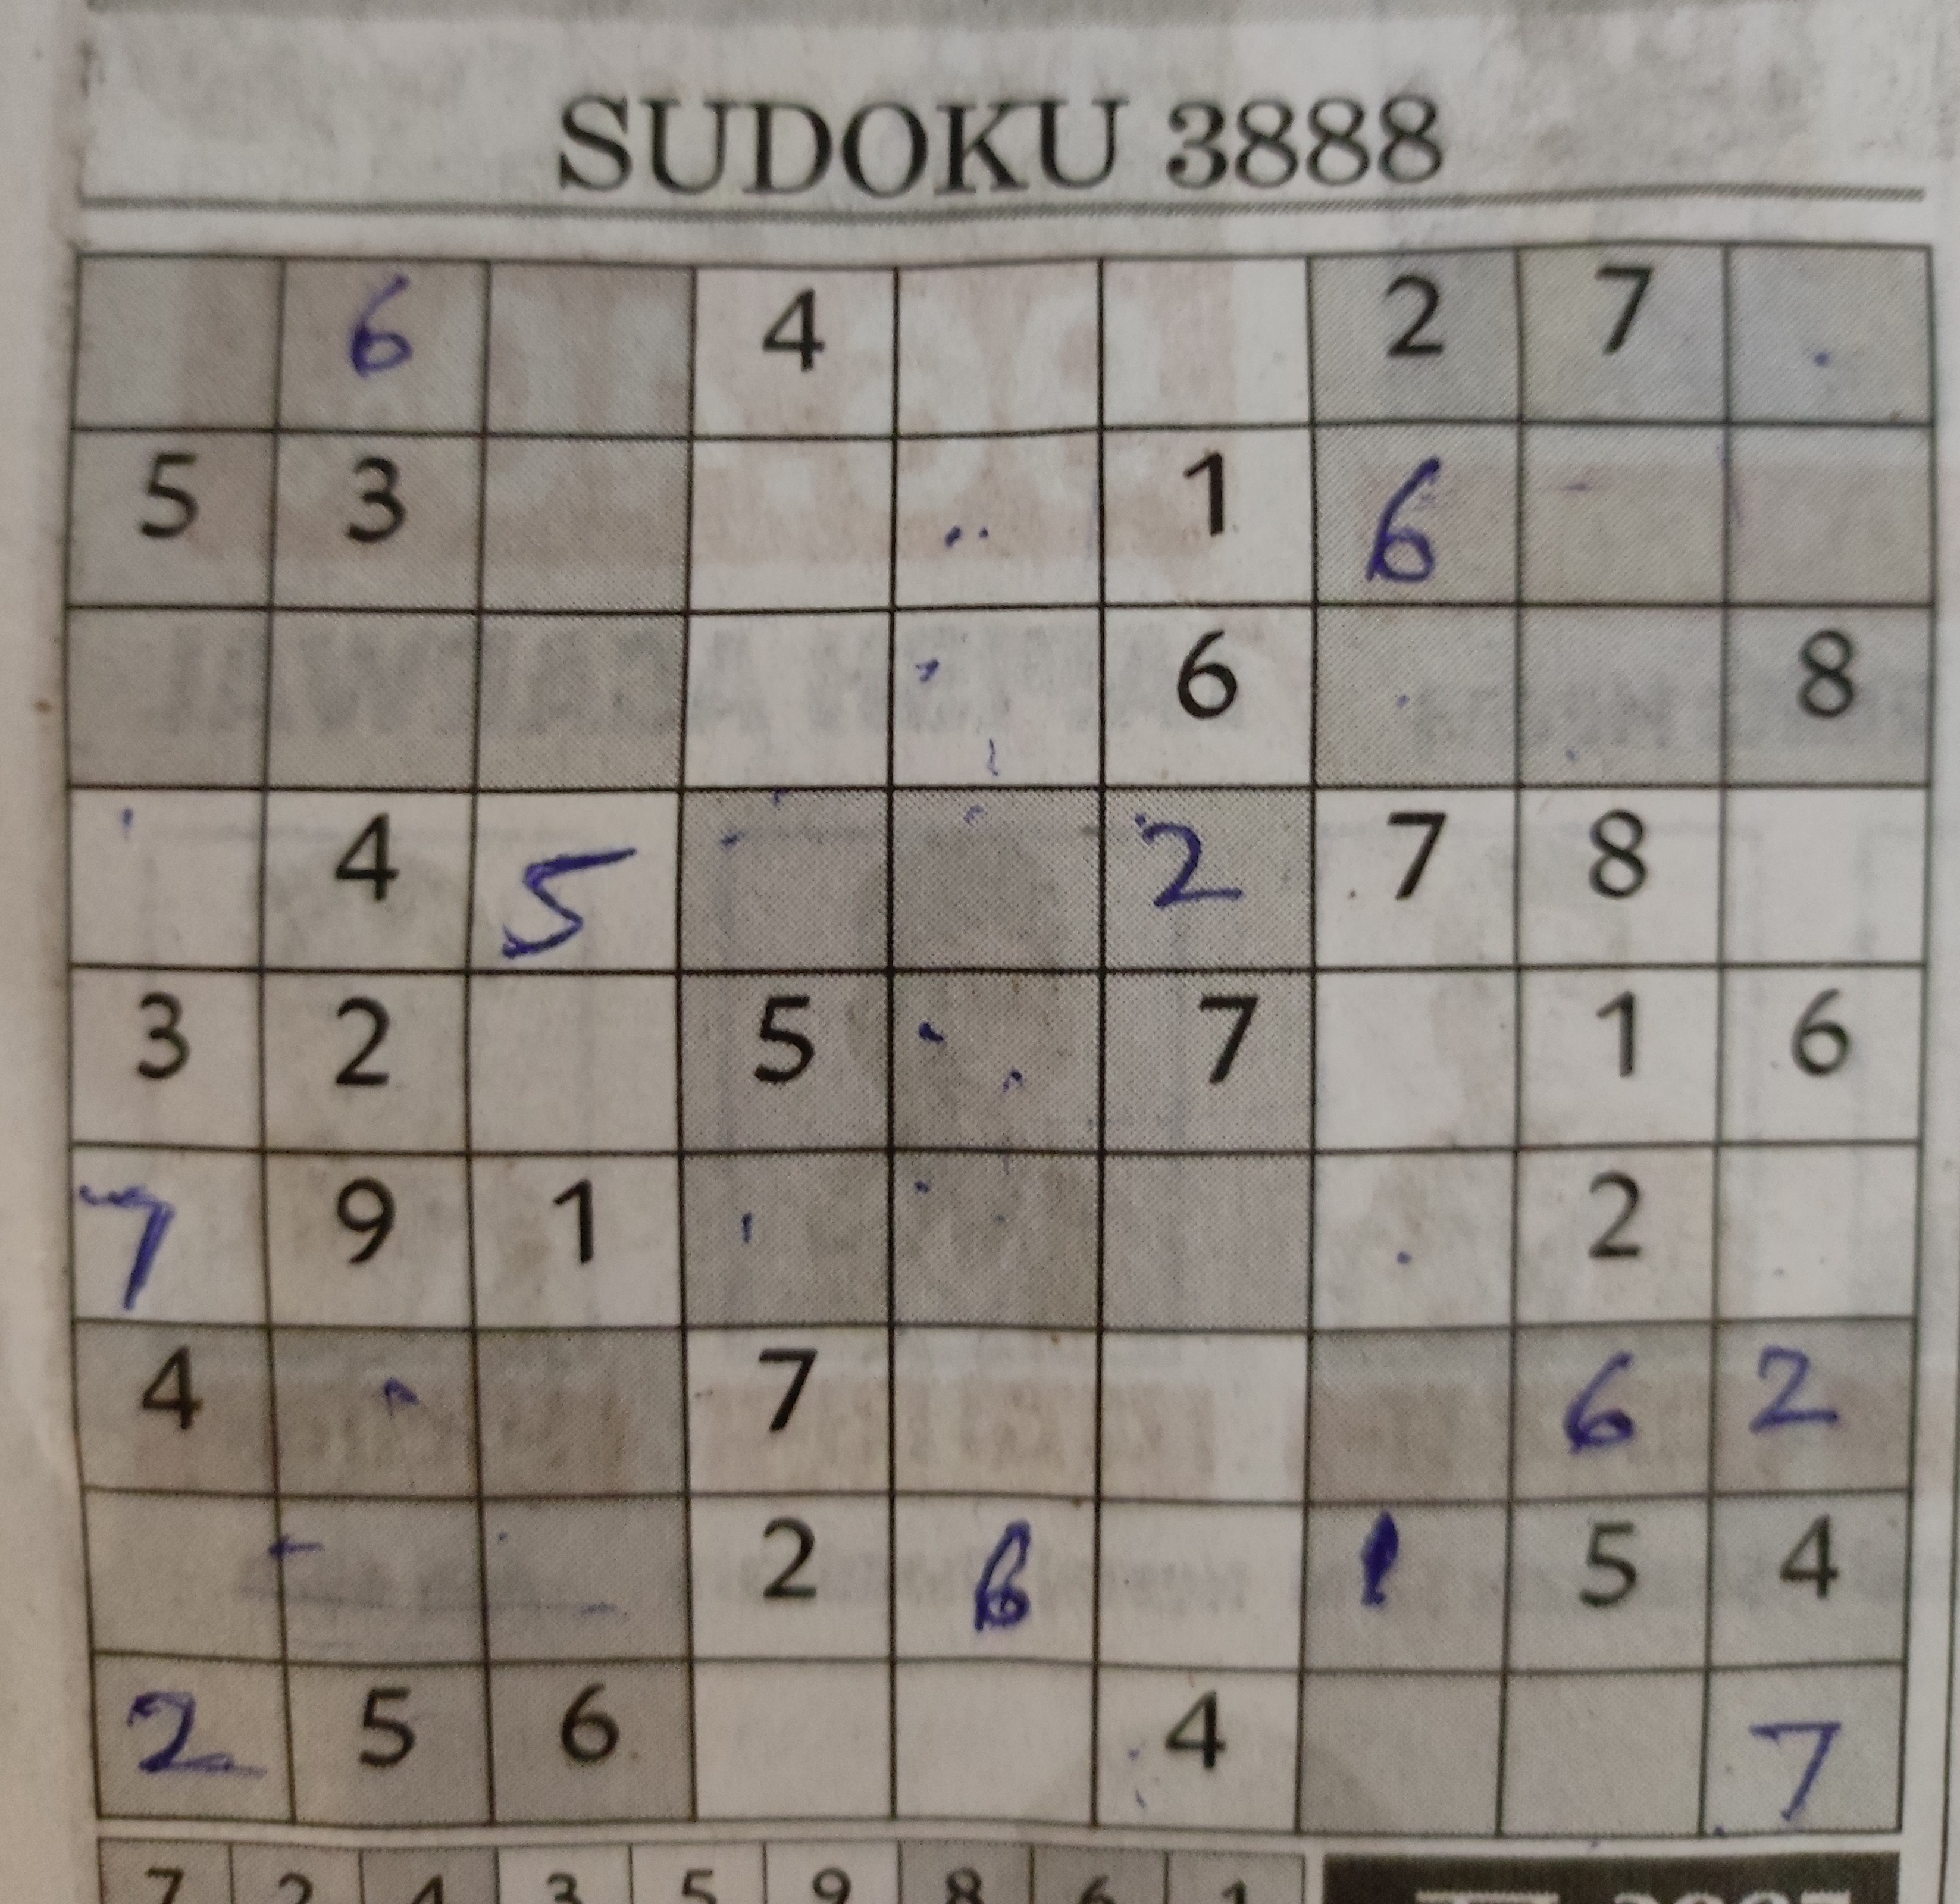 SUDOKU 3888
6 4 2 7
5 3 1 6
6 8
4 5 2 7 8
3 2 5 7 1 6
7 9 1 2
4 7 6 2
2 6 1 5 4
2 5 6 4 7
7 2 4 3 5 9 8 6 1